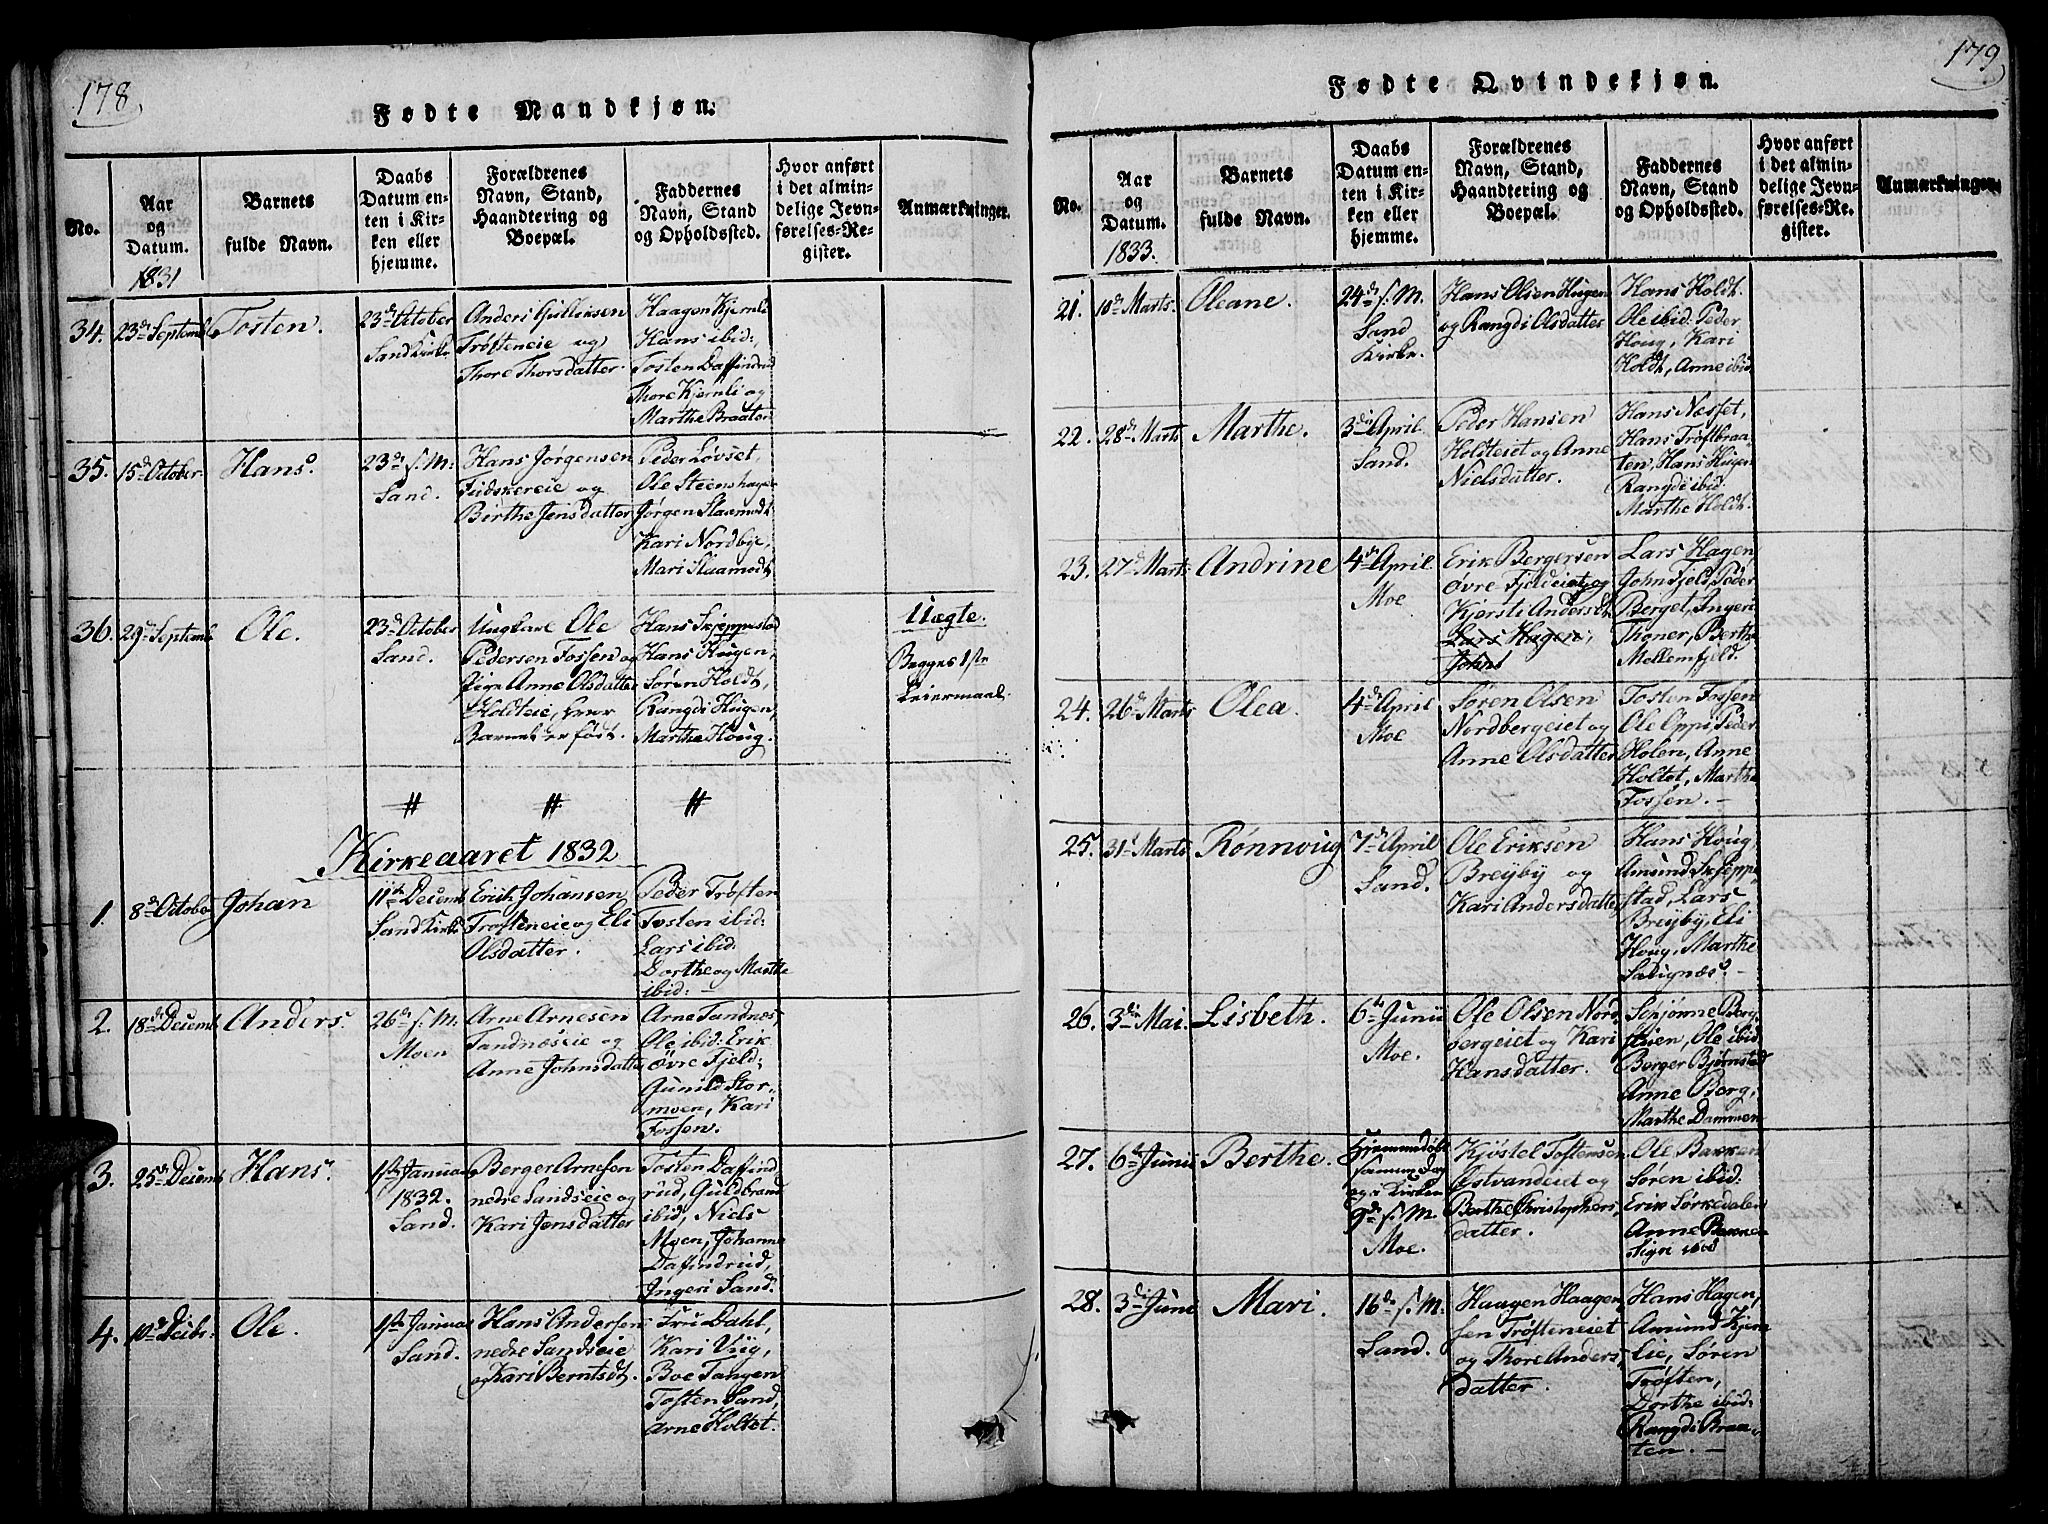 178.
Fødte Mandkjøn.
No.
Aar
og
Datum.
1831
Barnets
fulde Navn.
Daabs
Datum en-
ten i Kir-
ken eller
hjemme.
Forældrenes
Navn, Stand,
Haandtering og
Boepæl.
Faddernes
Navn, Stand
og Opholdssted.
Hvor anført
i det almin-
delige Jevn-
førelses-Re-
gister.
Anmærkninger.
34.
23de Septembr
Tosten.
23de October
Sand Kirke
Anders Gulliksen
Trøfteneie og
Thore Thorsdatter.
Haagen Kjernli
Hans ibid:,
Tosten Daffindrud
Thore Kjernli og
Marthe Braaten
35.
15de October.
Hans.
23de s. M.
Sand.
Hans Jørgensen
Fidskereie og
Birthe Jensdatter
Peder Løvset,
Ole Steenshagen
Jørgen Slaamodt
Kari Nordbye,
Mari Slaamodt
36.
29de Septemb
Ole.
23de October
Sand.
Ungkarl Ole
Pedersen Fossen og
pige Anne Olsdatter
Holdteie, hvor
Barnet er født.
Hans Skjeppestad
Hans Hugen,
Søren Holdt,
Rangdi Hugen,
Marthe Houg.
Uægte.
Begges 1ste
Leiermaal.
# # #
Kirkeaaret 1832
1.
8de October
Johan
11te Decemb.
Sand Kirke
Erik Johansen
Trøfteneie og Eli
Olsdatter.
Peder Trøften
Tosten ibid:
Lars ibid:
Dorthe og Marthe
ibid: –
2.
18de Decemb
Anders.
26de s. M.
Moen
Arne Arnesen
Sandnæseie og
Anne Johnsdatter
Arne Sandnæs,
Ole ibid: Erik
Øvre Fjeld:
Gunild Stor-
moen, Kari
Fossen.
3.
25de Decemb
Hans.
1ste Januar
1832.
Sand.
Berger Arnesen
nedre Sandseie og
Kari Jensdatter
Tosten Daffind
rud, Guldbrand
ibid, Niels
Moen, Johanne
Daffindrud,
Ingeri Sand.
4.
10de Decbr:
Ole.
1ste Januar
Sand.
Hans Andersen
nedre Sandseie
og Kari Berntsdt.
Fru Dahl,
Kari Viig,
Boe Tangen
Tosten Sand,
Arne Holtet.
179.
Fødte Qvindekjøn.
No.
Aar
og
Datum.
1833.
Barnets
fulde Navn.
Daabs
Datum en-
ten i Kir-
ken eller
hjemme.
Forældrenes
Navn, Stand,
Haandtering og
Boepæl.
Faddernes
Navn, Stand
og Opholdssted.
Hvor anført
i det almin-
delige Jevn-
førelses-Re-
gister.
Anmærkninger.
21.
10de Marts.
Oleane.
24de s. M.
Sand
Kirke.
Hans Olsen Hugen
og Rangdi Olsdatter
Hans Holdt.
Ole ibid: Peder
Houg, Kari
Holdt, Anne ibid
22.
28de Marts
Marthe.
3die April
Sand.
Peder Hansen
Holdteiet og Anne
Nielsdatter.
Hans Næsset,
Hans Trøftbraa-
ten, Hans Hugen
Rangdi ibid:
Marthe Holdt.
23.
27de Marts
Andrine
4de April
Moe
Erik Bergersen
Øvre Fjeldeiet og
Kjersti Andersdt
Lars Hagen,
Johns
Lars Hagen,
John Fjeld, Peder
Berget, Ingeri
Thoner, Berthe
Mellemfjeld.
24.
26de Marts
Olea.
4de April
Moe
Søren Olsen
Nordbergeiet og
Anne Olsdatter
Tosten Fossen
Ole Oppi, Peder
Holen, Anne
Holtet, Marthe
Fossen. –
25.
31te Marts
Rønnoug
7de April
Sand.
Ole Eriksen
Breyby og
Kari Andersdatter
Hans Houg,
Amund Skjeppe-
stad, Lars
Breyby, Eli
Houg, Marthe
Saugnæs. –
26.
3die Mai.
Lisbeth.
6te Junii
Moe.
Ole Olsen Nord
bergeiet og Kari
Hansdatter.
Schjønne Berg
stuen, Ole ibid
Berger Bjørnstad
Anne Berg,
Marthe Dammen
27.
6te Junii
Berthe.
Hjemmedøbt
samme Dag
og i Kirken
9de s. M.
Moe.
Kjøstel Toftensen
Østvandeiet og
Berthe Christophers
datter.
Ole Bakken
Søren ibid:
Erik Sørkedalen
Anne Bakken
Sigri ibid
28.
3die Juni
Mari.
16de s. M.
Sand.
Haagen Haagen
sen Trøfteneiet
og Thore Anders
datter.
Hans Hagen,
Amund Kjern
lie, Søren
Trøften,
Dorthe ibid:
Rangdi Braa-
ten. –